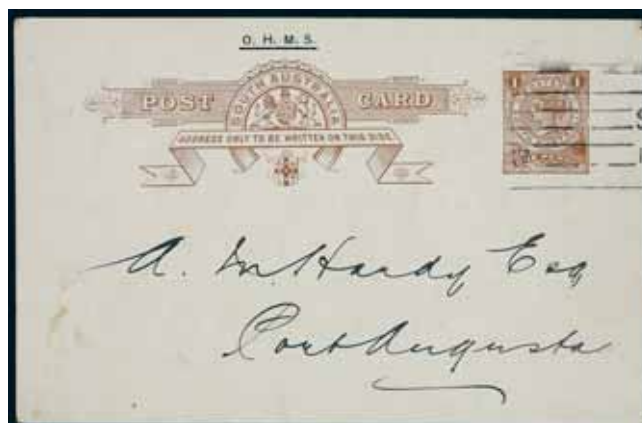 O. H. M. S.
POST SOUTH AUSTRALIA CARD
ADDRESS ONLY TO BE WRITTEN ON THIS SIDE.
1 1
A. M. Hardy Esq
Port Augusta